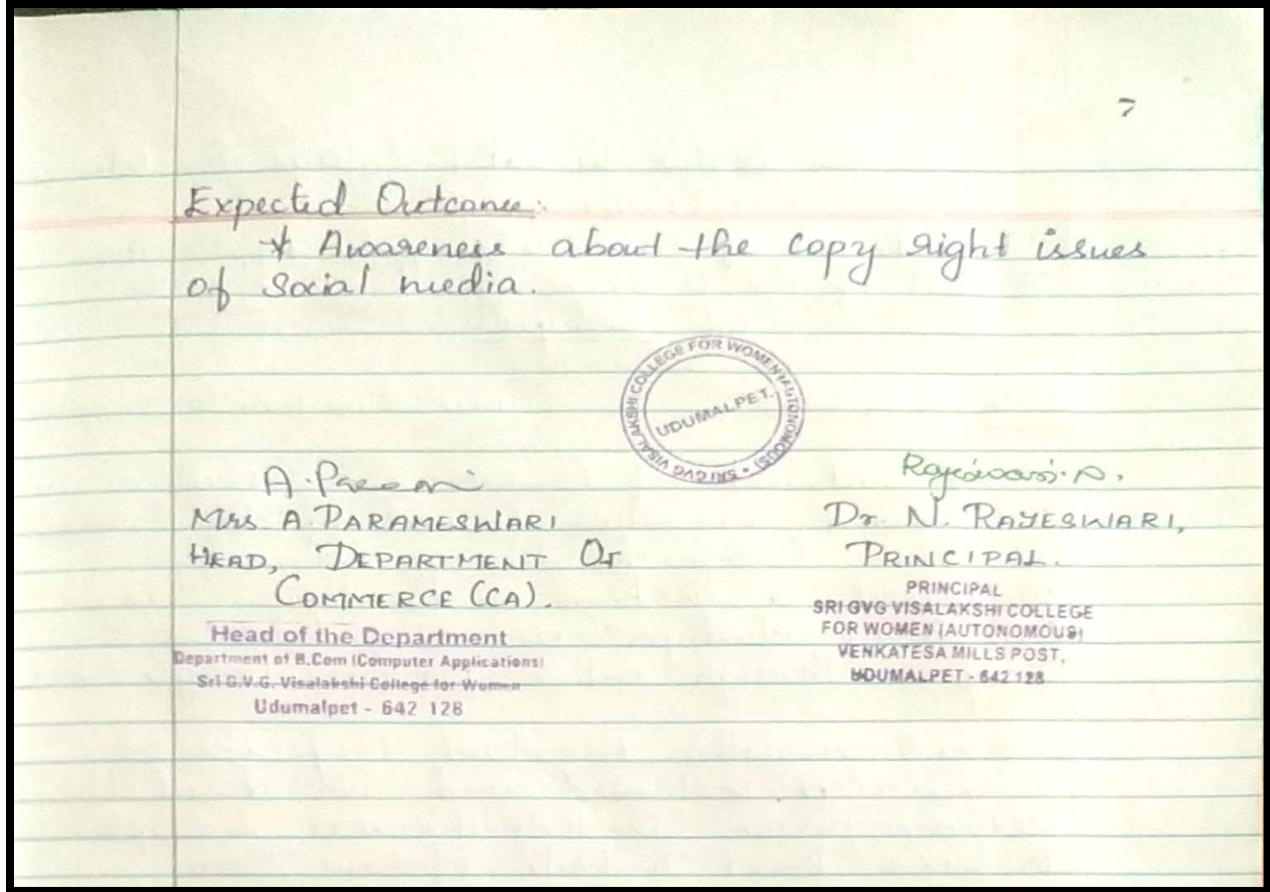 7
Expected Outcome:
* Awareness about the copy right issues
of social media.
SRI GVG VISALAKSHI COLLEGE FOR WOMEN (AUTONOMOUS) *
UDUMALPET.
Rajeswari.N.
Mrs A. PARAMESWARI
HEAD, DEPARTMENT OF
COMMERCE (CA).
Head of the Department
Department of B.Com (Computer Applications)
Sri G.V.G. Visalakshi College for Women
Udumalpet - 642 128
Dr. N. RAJESWARI,
PRINCIPAL.
PRINCIPAL
SRI GVG VISALAKSHI COLLEGE
FOR WOMEN (AUTONOMOUS)
VENKATESA MILLS POST,
UDUMALPET - 642 128